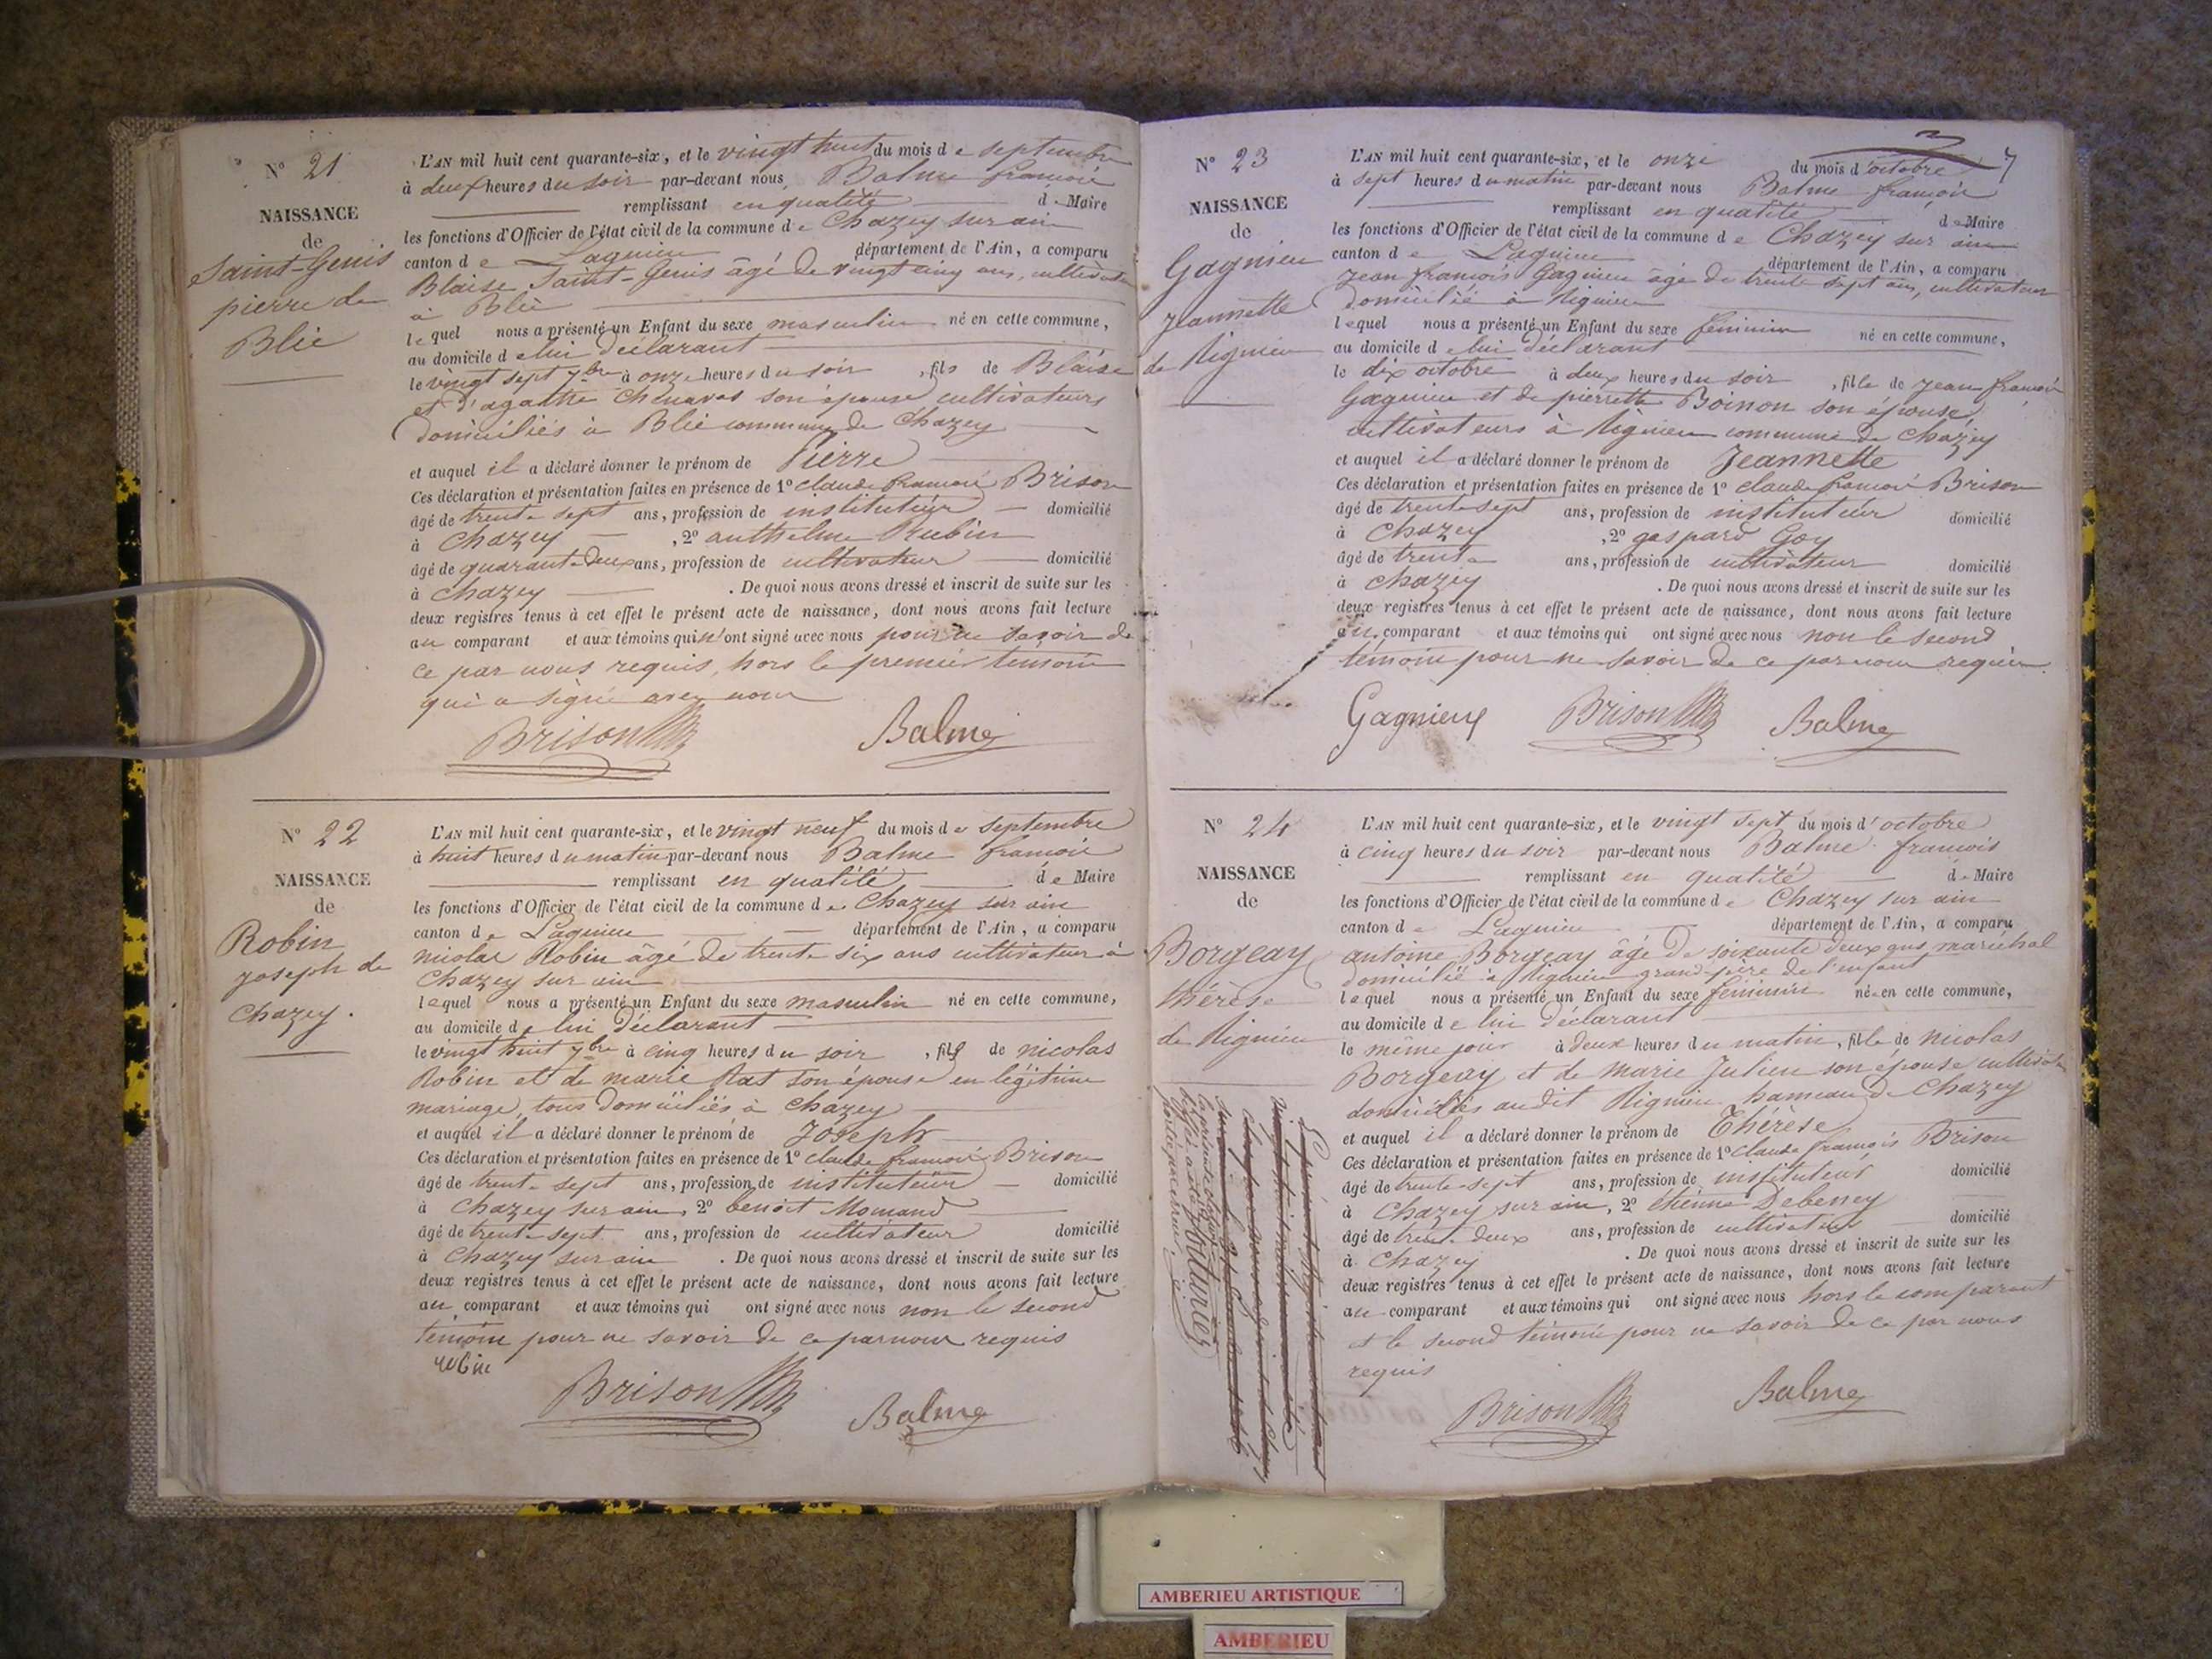 N° 21
NAISSANCE
de
Saint-Genis
pierre de
Blie
L'AN mil huit cent quarante-six, et le vingt huit du mois de septembre
à deux heures du soir par-devant nous Balme françois
remplissant en qualité de Maire
les fonctions d'Officier de l'état civil de la commune de Chazey sur ain
canton de Lagnieu département de l'Ain, a comparu
Blaise Saint-Genis âgé de vingt cinq ans, cultivateur
à Blie
lequel nous a présenté un Enfant du sexe masculin né en cette commune,
au domicile de lui déclarant
le vingt sept 7bre à onze heures du soir, fils de Blaise
et d'agathe Chenavas son épouse cultivateurs
domiciliés à Blie commune de Chazey
et auquel il a déclaré donner le prénom de Pierre
Ces déclaration et présentation faites en présence de 1° claude françois Brison
âgé de trente sept ans, profession de instituteur domicilié
à Chazey, 2° anthelme Rubin
âgé de quarante deux ans, profession de cultivateur domicilié
à Chazey. De quoi nous avons dressé et inscrit de suite sur les
deux registres tenus à cet effet le présent acte de naissance, dont nous avons fait lecture
au comparant et aux témoins qui n'ont signé avec nous pour ne savoir de
ce par nous requis, hors le premier témoin
qui a signé avec nous
Brison Balme
N° 22
NAISSANCE
de
Robin
joseph de
Chazey.
L'AN mil huit cent quarante-six, et le vingt neuf du mois de septembre
à huit heures du matin par-devant nous Balme françois
remplissant en qualité de Maire
les fonctions d'Officier de l'état civil de la commune de Chazey sur ain
canton de Lagnieu département de l'Ain, a comparu
nicolas Robin âgé de trente six ans cultivateur à
Chazey sur ain
lequel nous a présenté un Enfant du sexe masculin né en cette commune,
au domicile de lui déclarant
le vingt huit 7bre à cinq heures du soir, fils de nicolas
Robin et de marie Rat son épouse en légitime
mariage, tous domiciliés à Chazey
et auquel il a déclaré donner le prénom de Joseph
Ces déclaration et présentation faites en présence de 1° claude françois Brison
âgé de trente sept ans, profession de instituteur domicilié
à Chazey sur ain, 2° benoit Momand
âgé de trente sept ans, profession de cultivateur domicilié
à Chazey sur ain. De quoi nous avons dressé et inscrit de suite sur les
deux registres tenus à cet effet le présent acte de naissance, dont nous avons fait lecture
au comparant et aux témoins qui ont signé avec nous non le second
témoin pour ne savoir de ce par nous requis
robin Brison Balme
7
N° 23
NAISSANCE
de
Gagnieu
jeannette
de Rignieu
L'AN mil huit cent quarante-six, et le onze du mois d'octobre
à sept heures du matin par-devant nous Balme françois
remplissant en qualité de Maire
les fonctions d'Officier de l'état civil de la commune de Chazey sur ain
canton de Lagnieu département de l'Ain, a comparu
jean françois Gagnieu âgé de trente sept ans, cultivateur
domicilié à Rignieu
lequel nous a présenté un Enfant du sexe féminin né en cette commune,
au domicile de lui déclarant
le dix octobre à deux heures du soir, fille de jean françois
Gagnieu et de pierrette Boinon son épouse
cultivateurs à Rignieu commune de Chazey
et auquel il a déclaré donner le prénom de Jeannette
Ces déclaration et présentation faites en présence de 1° claude françois Brison
âgé de trente sept ans, profession de instituteur domicilié
à Chazey, 2° gaspard Goy
âgé de trente ans, profession de cultivateur domicilié
à Chazey. De quoi nous avons dressé et inscrit de suite sur les
deux registres tenus à cet effet le présent acte de naissance, dont nous avons fait lecture
au comparant et aux témoins qui ont signé avec nous non le second
témoin pour ne savoir de ce par nous requis
Gagnieux Brison Balme
N° 24
NAISSANCE
de
Borgeay
thérèse
de Rignieu
L'AN mil huit cent quarante-six, et le vingt sept du mois d'octobre
à cinq heures du soir par-devant nous Balme françois
remplissant en qualité de Maire
les fonctions d'Officier de l'état civil de la commune de Chazey sur ain
canton de Lagnieu département de l'Ain, a comparu
antoine Borgeay âgé de soixante deux ans maréchal
domicilié à Rignieu grand-père de l'enfant
lequel nous a présenté un Enfant du sexe féminin né en cette commune,
au domicile de lui déclarant
le même jour à deux heures du matin, fille de nicolas
Borgeay et de Marie Julien son épouse
domiciliés audit Rignieu hameau de Chazey
et auquel il a déclaré donner le prénom de Thérèse
Ces déclaration et présentation faites en présence de 1° claude françois Brison
âgé de trente sept ans, profession de instituteur domicilié
à Chazey sur ain, 2° étienne Debeney
âgé de trente deux ans, profession de cultivateur domicilié
à Chazey. De quoi nous avons dressé et inscrit de suite sur les
deux registres tenus à cet effet le présent acte de naissance, dont nous avons fait lecture
au comparant et aux témoins qui ont signé avec nous hors le comparant
et le second témoin pour ne savoir de ce par nous
requis
Brison Balme
AMBERIEU ARTISTIQUE
AMBERIEU